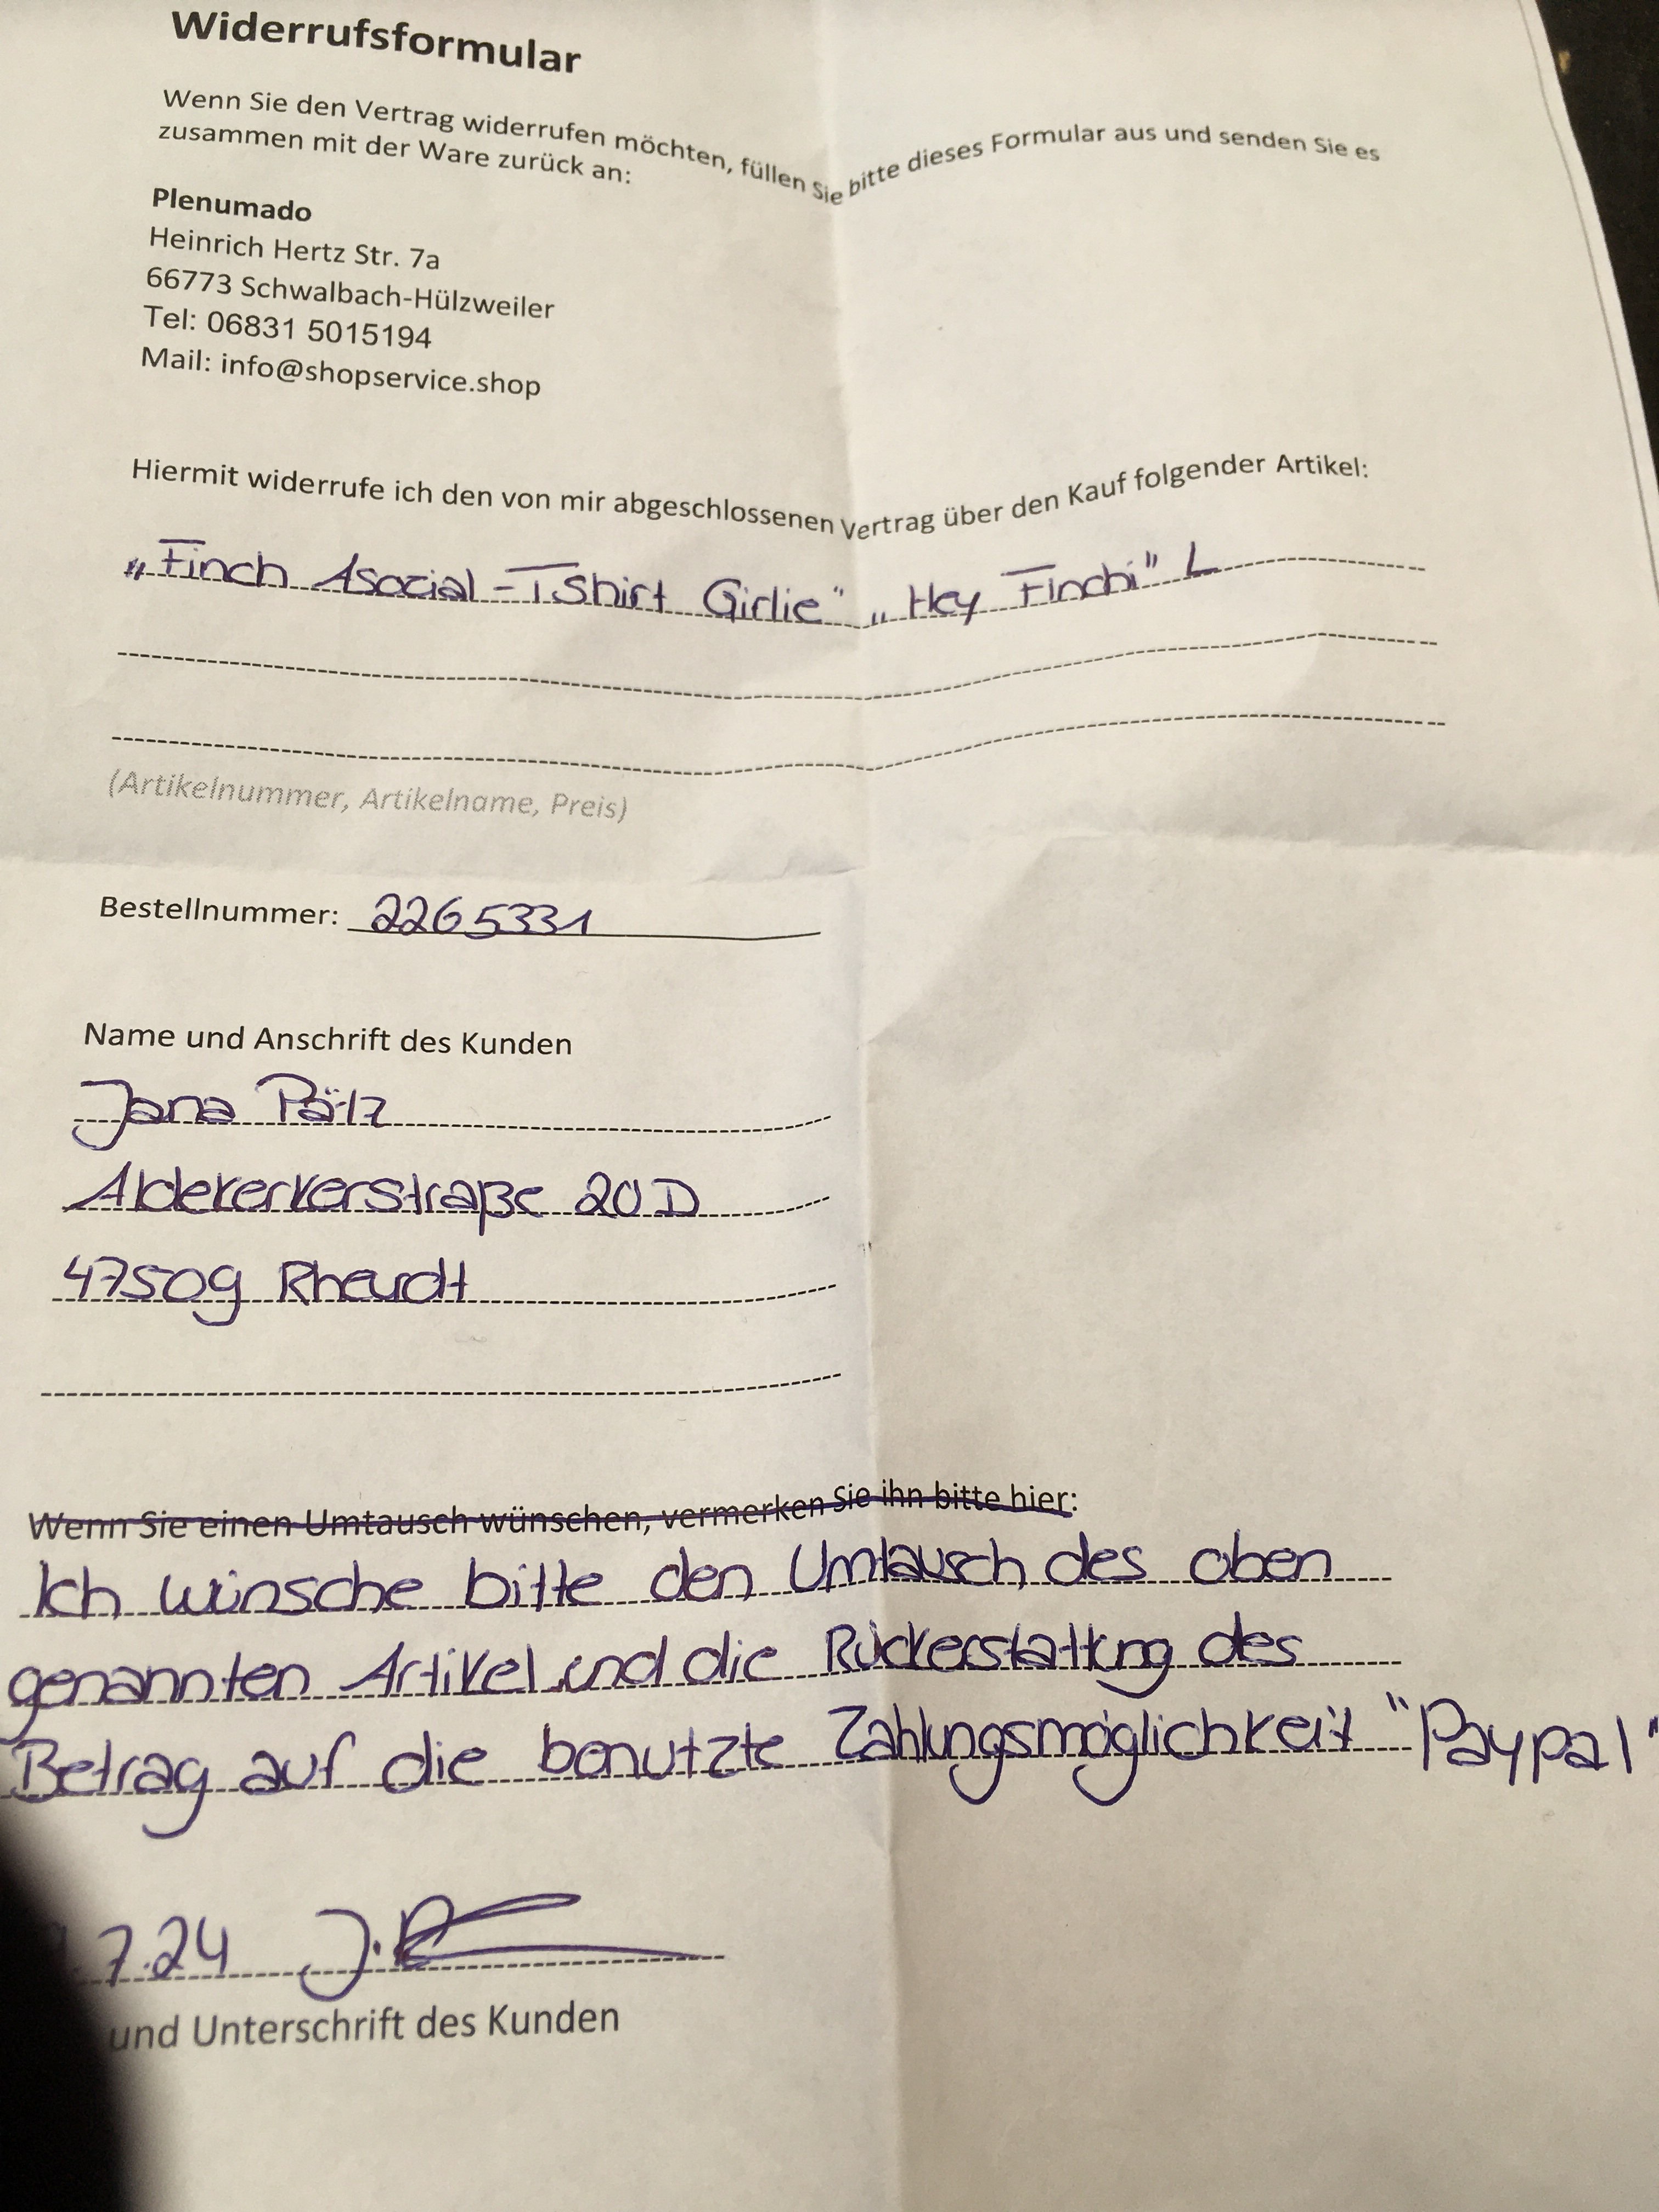 Widerrufsformular
Wenn Sie den Vertrag widerrufen möchten, füllen Sie bitte dieses Formular aus und senden Sie es
zusammen mit der Ware zurück an:
Plenumado
Heinrich Hertz Str. 7a
66773 Schwalbach-Hülzweiler
Tel: 06831 5015194
Mail: info@shopservice.shop
Hiermit widerrufe ich den von mir abgeschlossenen Vertrag über den Kauf folgender Artikel:
„Finch Asocial-TShirt Girlie" „Hey Finchi" L
(Artikelnummer, Artikelname, Preis)
Bestellnummer: 2265331
Name und Anschrift des Kunden
Jana Pälz
Aldekerkerstraße 20D
47509 Rheurdt
Wenn Sie einen Umtausch wünschen, vermerken Sie ihn bitte hier:
Ich wünsche bitte den Umtausch des oben
genannten Artikel und die Rückerstattung des
Betrag auf die benutzte Zahlungsmöglichkeit "Paypal"
7.24 J.P
und Unterschrift des Kunden